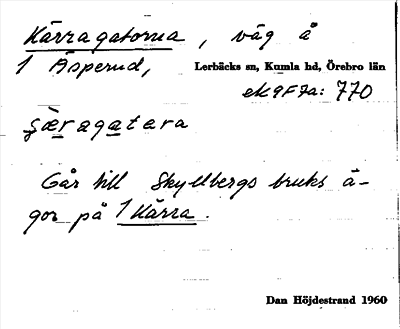 Kärragatorna, väg å
1 Äsperud,
Lerbäcks sn, Kumla hd, Örebro län
ek 9F7a: 770
çæragatara
Går till Skyllbergs bruks ä-
gor på 1 Kärra.
Dan Höjdestrand 1960